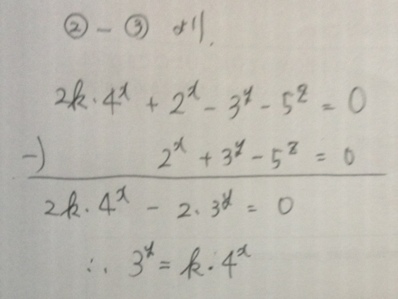 ② - ③ より,
2k·4ˣ + 2ˣ - 3ʸ - 5ᶻ = 0
-) 2ˣ + 3ʸ - 5ᶻ = 0
2k·4ˣ - 2·3ʸ = 0
∴ 3ʸ = k·4ˣ